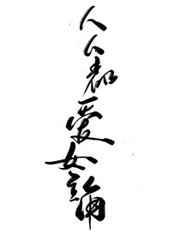 人人都爱女主角